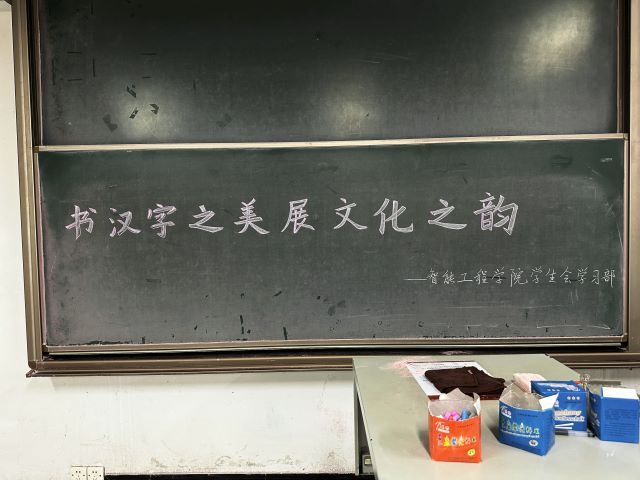 书汉字之美展文化之韵
——智能工程学院学生会学习部